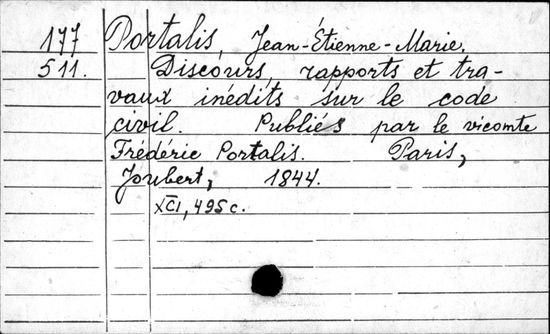 177 Portalis, Jean-Étienne-Marie.
511. Discours, rapports et tra-
vaux inédits sur le code
civil. Publiés par le vicomte
Frédéric Portalis. Paris,
Joubert, 1844.
XCI, 495 c.